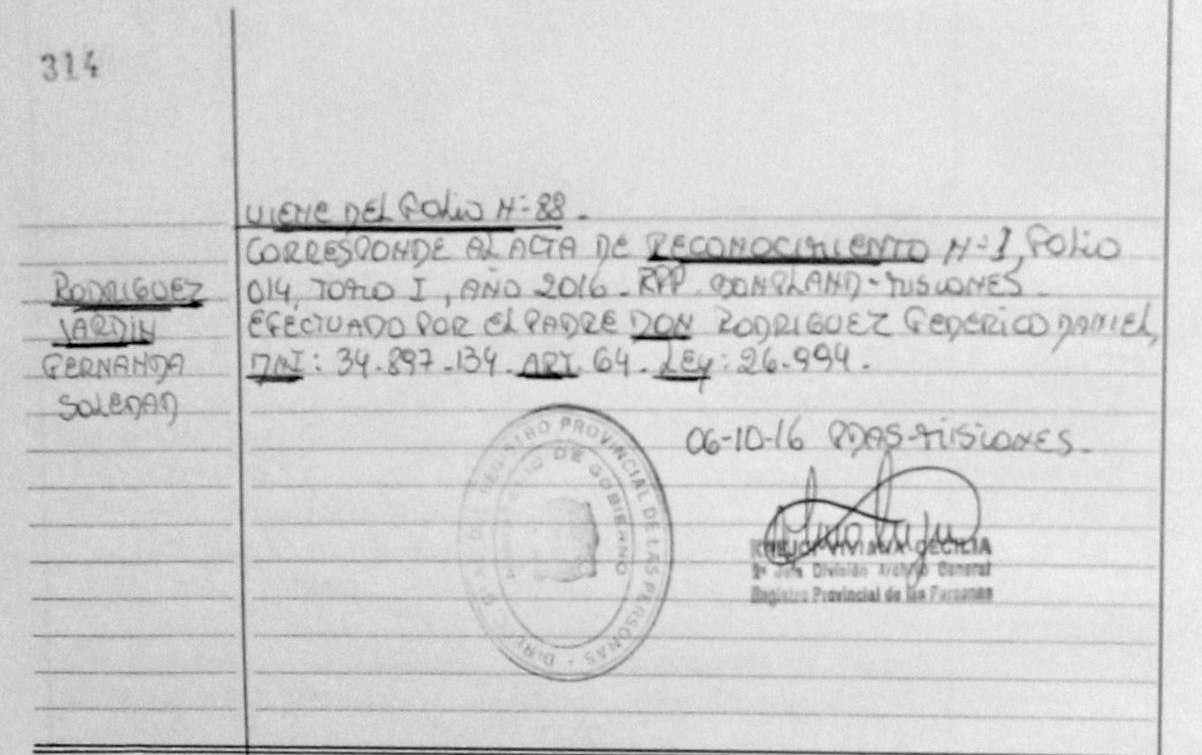 314
VIENE DEL FOLIO Nº 88.
CORRESPONDE AL ACTA DE RECONOCIMIENTO Nº I, FOLIO
014, TOMO I, AÑO 2016. RPP. BONPLAND-MISIONES.
EFECTUADO POR EL PADRE DON RODRIGUEZ FEDERICO DANIEL,
DNI: 34.897.134. ART. 64. LEY: 26.994.
RODRIGUEZ
JARDIN
FERNANDA
SOLEDAD
06-10-16 PDAS-MISIONES.
REGISTRO PROVINCIAL DE LAS PERSONAS
DE GOBIERNO
VIVIANA CECILIA
División Archivo General
Registro Provincial de las Personas